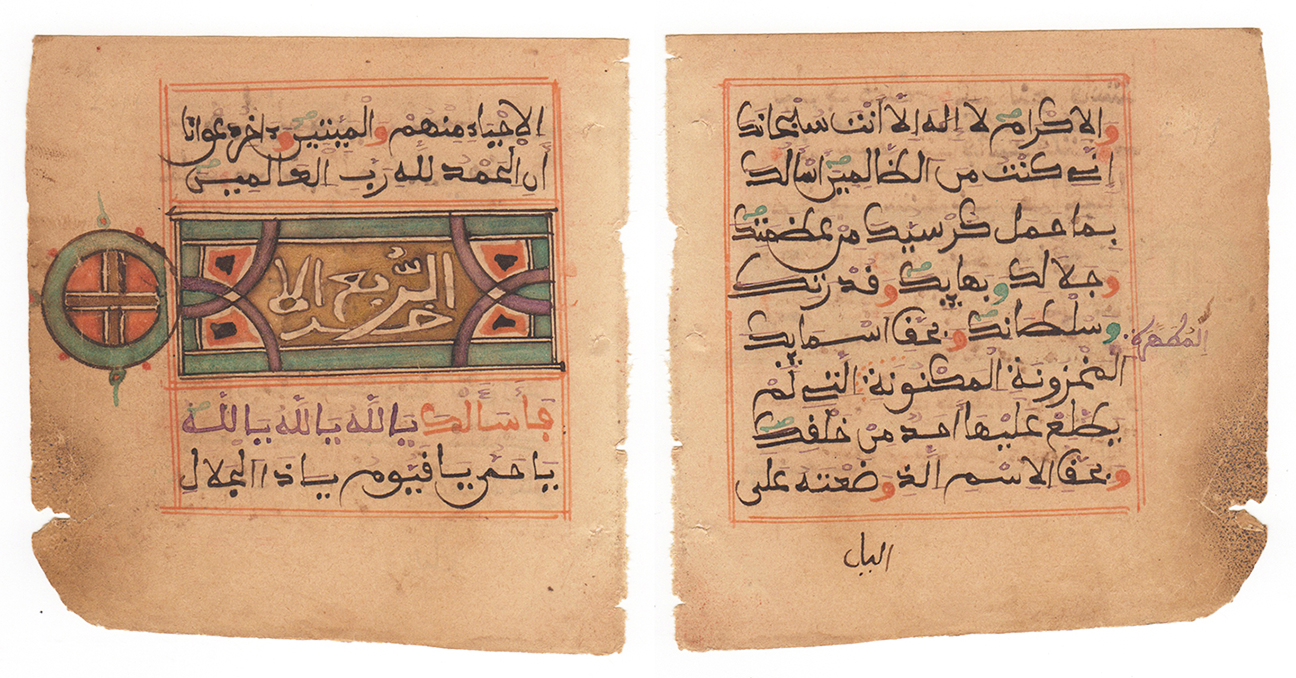 الاحياء منهم والميتين وءاخر دعوانا
أن الحمد لله رب العالمين
الرّبع الا
خر
فأسألك يالله يالله يالله
ياحي ياقيوم ياذا الجلال
والاكرام لا اله الا أنت سبحانك
إني كنت من الظالمين اسالك
بما حمل كرسيك من عظمتك
وجلالك وبهايك وقدرتك
وسلطانك وبحق اسمايك
المطهرة
المخزونة المكنونة التي لم
يطلع عليها احد من خلقك
وبحق الاسم الذي وضعته على
اليل